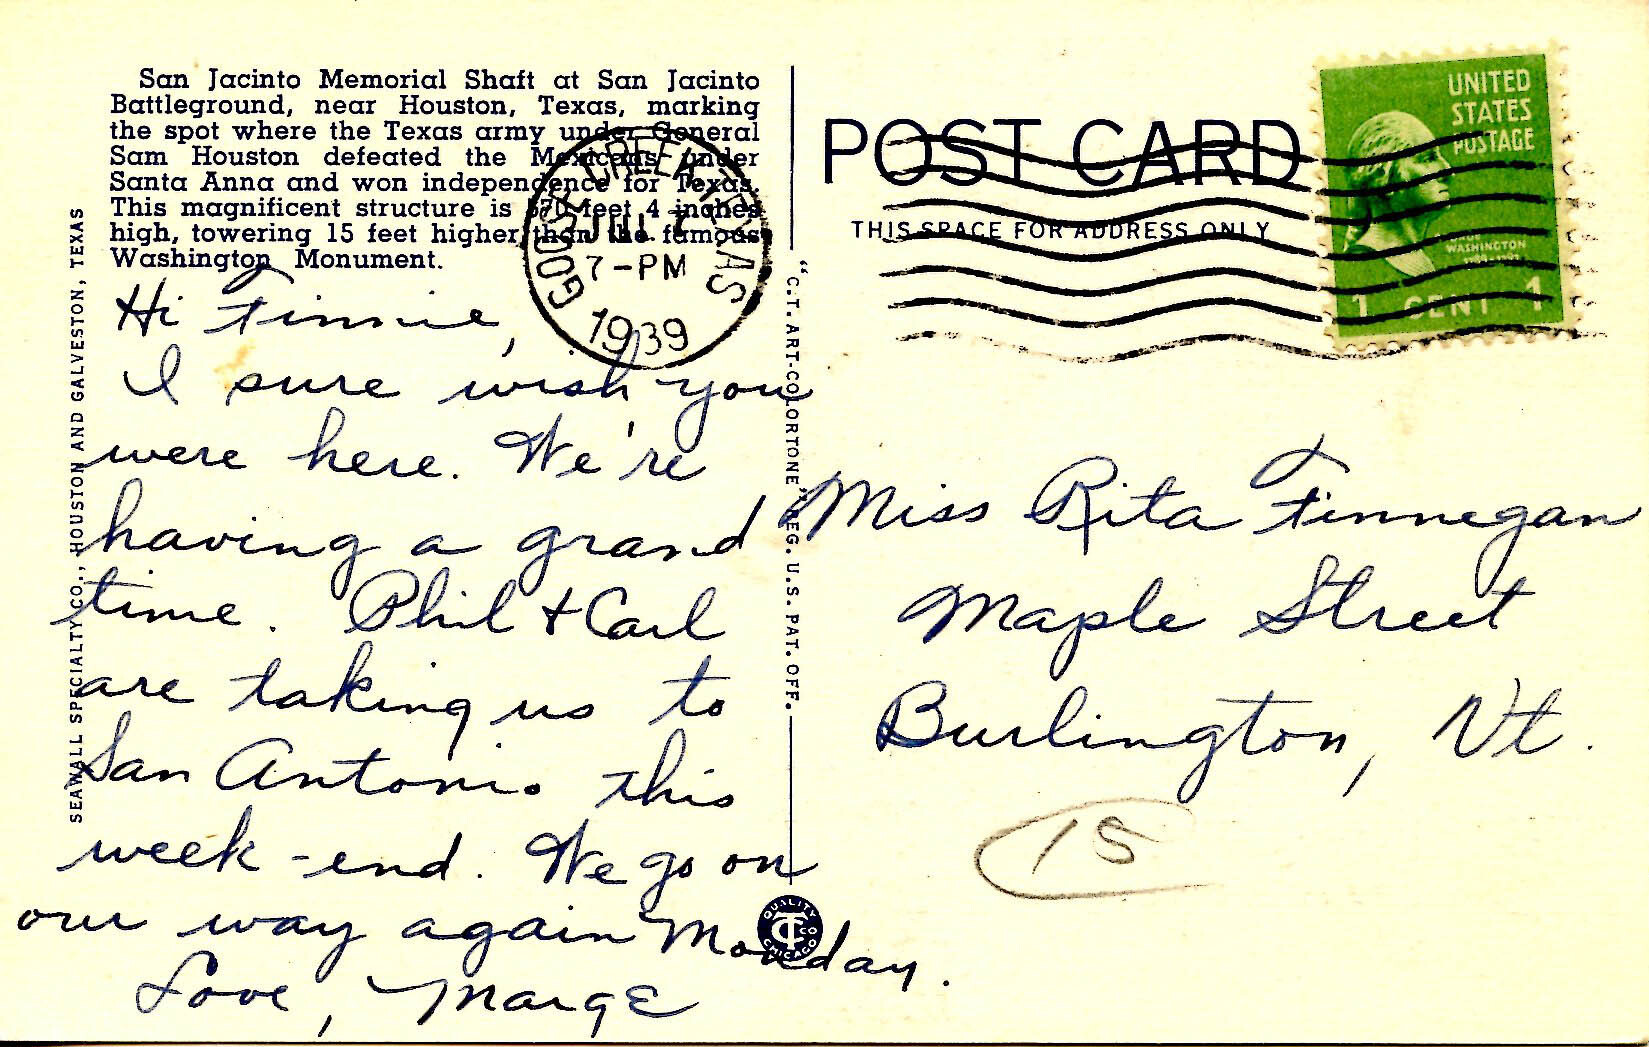 San Jacinto Memorial Shaft at San Jacinto
Battleground, near Houston, Texas, marking
the spot where the Texas army under General
Sam Houston defeated the Mexicans under
Santa Anna and won independence for Texas.
This magnificent structure is 570 feet 4 inches
high, towering 15 feet higher than the famous
Washington Monument.
GOOSE CREEK, TEXAS
JUL 7
7-PM
1939
Hi Finnie,
I sure wish you
were here. We're
having a grand
time. Phil + Carl
are taking us to
San Antonio this
week-end. We go on
our way again Monday.
Love, Marge
SEAWALL SPECIALTY CO., HOUSTON AND GALVESTON, TEXAS
"C.T. ART-COLORTONE" REG. U.S. PAT. OFF.
QUALITY
CT
CO
CHICAGO
POST CARD
THIS SPACE FOR ADDRESS ONLY
UNITED
STATES
POSTAGE
WASHINGTON
1 CENT 1
Miss Rita Finnegan
Maple Street
Burlington, Vt.
15